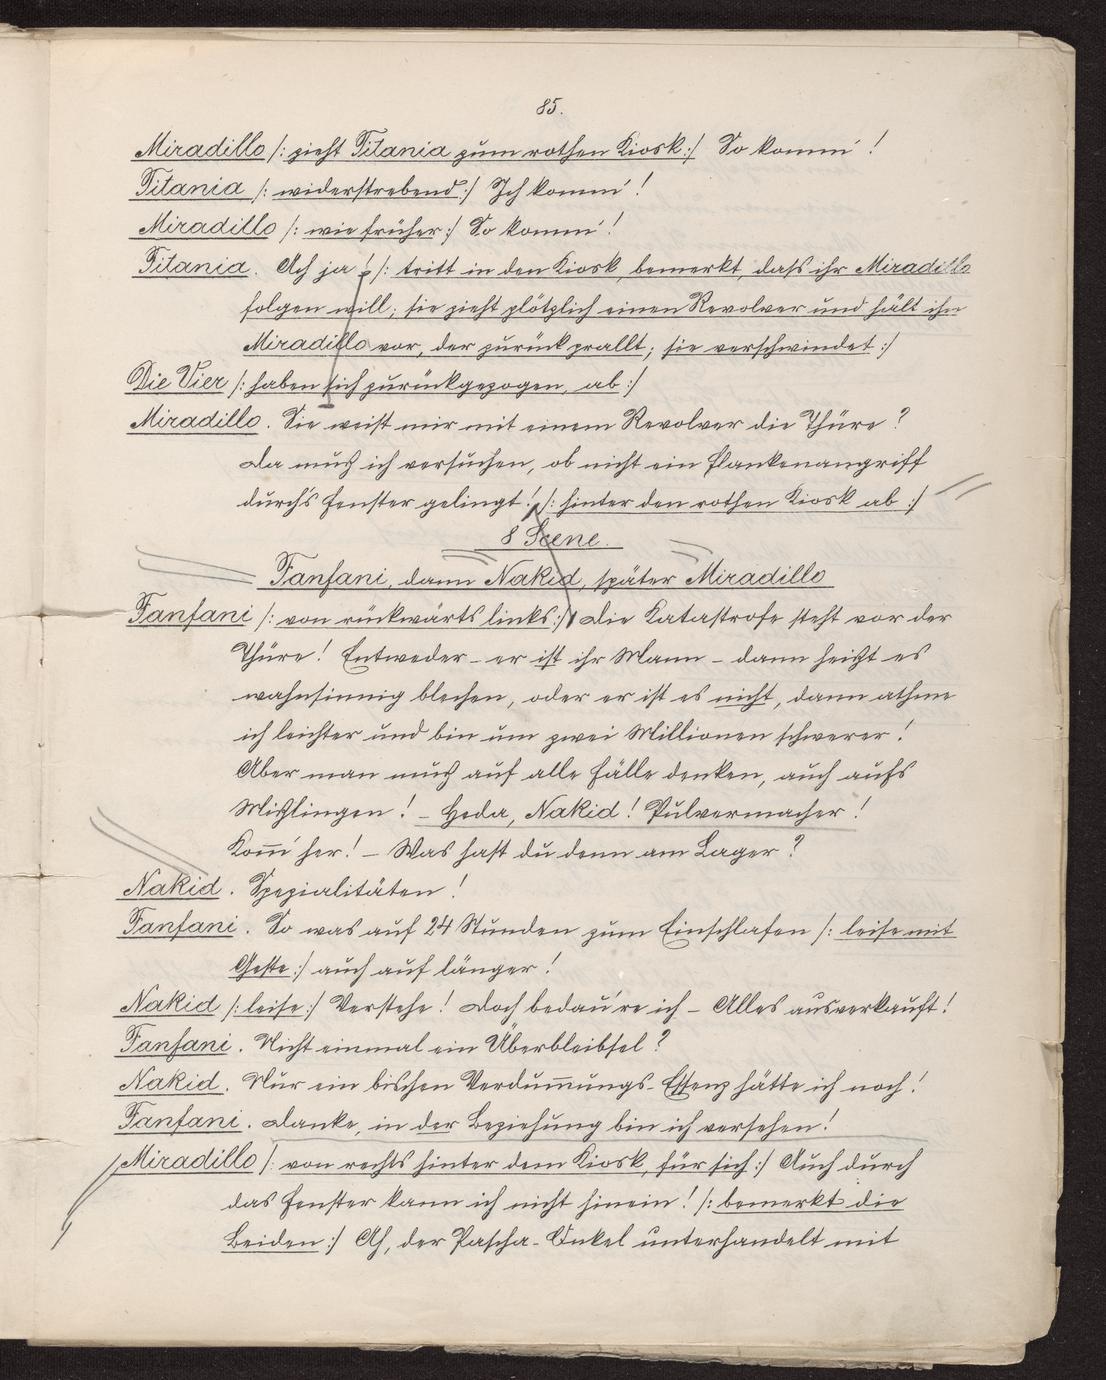 85.
Miradillo /: zieht Titania zum rothen Kiosk :/ So komm' !
Titania /: widerstrebend :/ Ich komm' !
Miradillo /: wie früher :/ So komm' !
Titania. Ach ja ! /: tritt in den Kiosk, bemerkt, dass ihr Miradillo
folgen will; sie zieht plötzlich einen Revolver und hält ihn
Miradillo vor, der zurückprallt; sie verschwindet :/
Die Vier /: haben sich zurückgezogen, ab :/
Miradillo. Sie weist mir mit einem Revolver die Thüre ?
Da muß ich versuchen, ob nicht ein Flankenangriff
durch's Fenster gelingt ! /: hinter den rothen Kiosk ab :/
8 Scene.
Fanfani, dann Nakid, später Miradillo
Fanfani /: von rückwärts links :/ Die Katastrofe steht vor der
Thüre ! Entweder – er ist ihr Mann – dann heißt es
wahnsinnig blechen, oder er ist es nicht, dann athme
ich leichter und bin um zwei Millionen schwerer !
Aber man muß auf alle Fälle denken, auch aufs
Mißlingen ! – Heda, Nakid ! Pulvermacher !
Kom̅' her ! – Was hast du denn am Lager ?
Nakid. Spezialitäten !
Fanfani. So was auf 24 Stunden zum Einschlafen /: leise mit
Geste :/ auch auf länger !
Nakid /: leise :/ Verstehe ! Doch bedau're ich – Alles ausverkauft !
Fanfani. Nicht einmal ein Überbleibsel ?
Nakid. Nur ein bischen Verdum̅ungs-Essenz hätte ich noch !
Fanfani. Danke, in der Beziehung bin ich versehen !
Miradillo /: von rechts hinter dem Kiosk, für sich :/ Auch durch
das Fenster kann ich nicht hinein ! /: bemerkt die
Beiden :/ Ah, der Pascha-Onkel unterhandelt mit